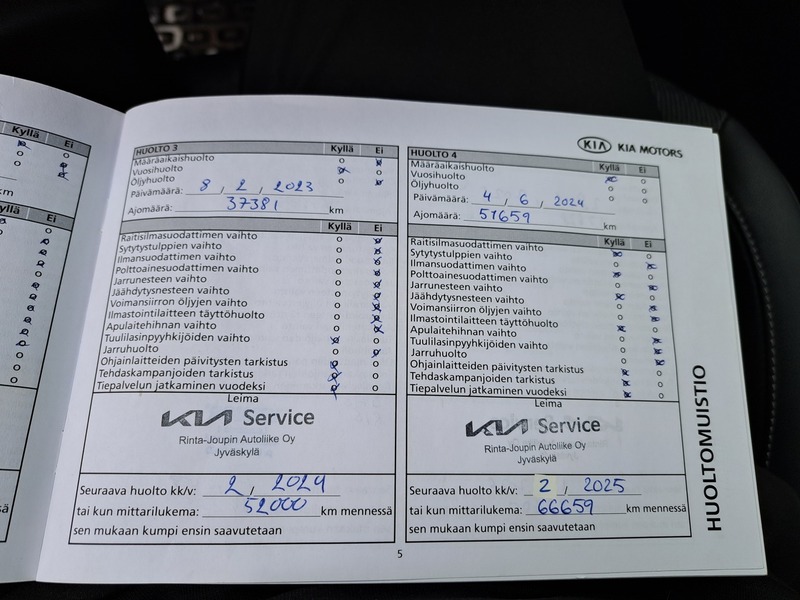 Kyllä Ei
km
yllä Ei
ssä
HUOLTO 3 Kyllä Ei
Määräaikaishuolto o o
Vuosihuolto o o
Öljyhuolto o o
Päivämäärä: 8 , 2 , 2023
Ajomäärä: 37381 km
Kyllä Ei
Raitisilmasuodattimen vaihto o o
Sytytystulppien vaihto o o
Ilmansuodattimen vaihto o o
Polttoainesuodattimen vaihto o o
Jarrunesteen vaihto o o
Jäähdytysnesteen vaihto o o
Voimansiirron öljyjen vaihto o o
Ilmastointilaitteen täyttöhuolto o o
Apulaitehihnan vaihto o o
Tuulilasinpyyhkijöiden vaihto o o
Jarruhuolto o o
Ohjainlaitteiden päivitysten tarkistus o o
Tehdaskampanjoiden tarkistus o o
Tiepalvelun jatkaminen vuodeksi o o
Leima
KIA Service
Rinta-Joupin Autoliike Oy
Jyväskylä
Seuraava huolto kk/v: 2 , 2024
tai kun mittarilukema: 52000 km mennessä
sen mukaan kumpi ensin saavutetaan
5
KIA KIA MOTORS
HUOLTO 4 Kyllä Ei
Määräaikaishuolto o o
Vuosihuolto o o
Öljyhuolto o o
Päivämäärä: 4 , 6 , 2024
Ajomäärä: 51659 km
Kyllä Ei
Raitisilmasuodattimen vaihto o o
Sytytystulppien vaihto o o
Ilmansuodattimen vaihto o o
Polttoainesuodattimen vaihto o o
Jarrunesteen vaihto o o
Jäähdytysnesteen vaihto o o
Voimansiirron öljyjen vaihto o o
Ilmastointilaitteen täyttöhuolto o o
Apulaitehihnan vaihto o o
Tuulilasinpyyhkijöiden vaihto o o
Jarruhuolto o o
Ohjainlaitteiden päivitysten tarkistus o o
Tehdaskampanjoiden tarkistus o o
Tiepalvelun jatkaminen vuodeksi o o
Leima
KIA Service
Rinta-Joupin Autoliike Oy
Jyväskylä
Seuraava huolto kk/v: 2 , 2025
tai kun mittarilukema: 66659 km mennessä
sen mukaan kumpi ensin saavutetaan
HUOLTOMUISTIO